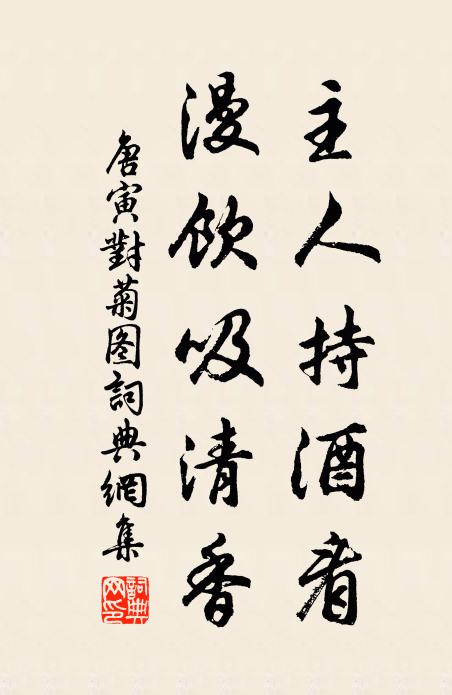 主人持酒看
漫飲吸清香
唐寅對菊图詞典網集
詞典网印